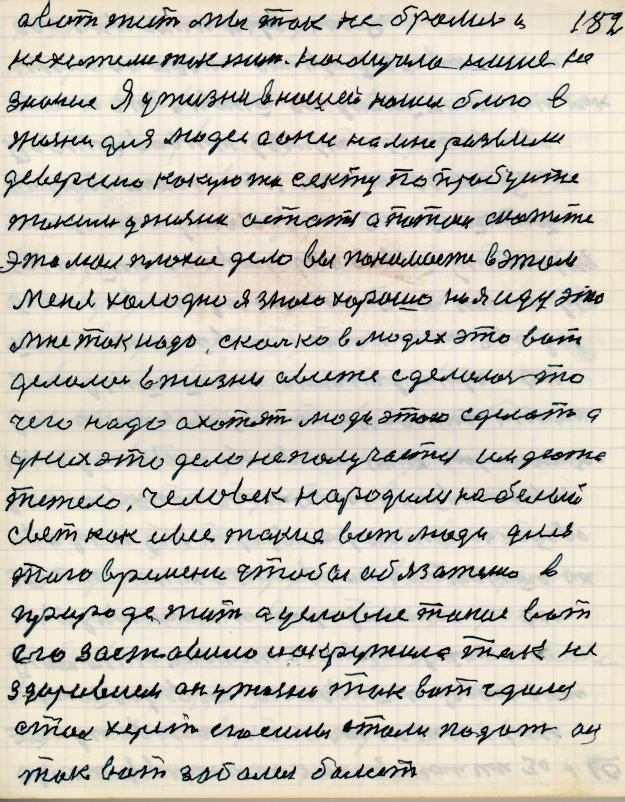 а вот жит мы так не брались и 182
не хотели так жит. научило наше не
знание Я у жизни в нашей нашел благо в
жизни для людей а они на мне развели
деверсию какую то секту попробуите
таким у жизни остатся а потом скажите
это мол плохое дело вы понимаете в этом
Меня холодно я знаю хорошо но я иду это
мне так надо, сколко в людях это вот
делалос в жизни а веже сделалос то
чего надо а хотят люди этого сделать а
у них это дело не получается им даже
тежело, Человек народили на белый
свет как и все такие вот люди для
этого времени чтобы обязателно в
природе жит а условие такие вот
его заставило и окружило так не
здоровием он у жизни так вот сделал
стал херет и силы стали падат он
так вот забалел болеет